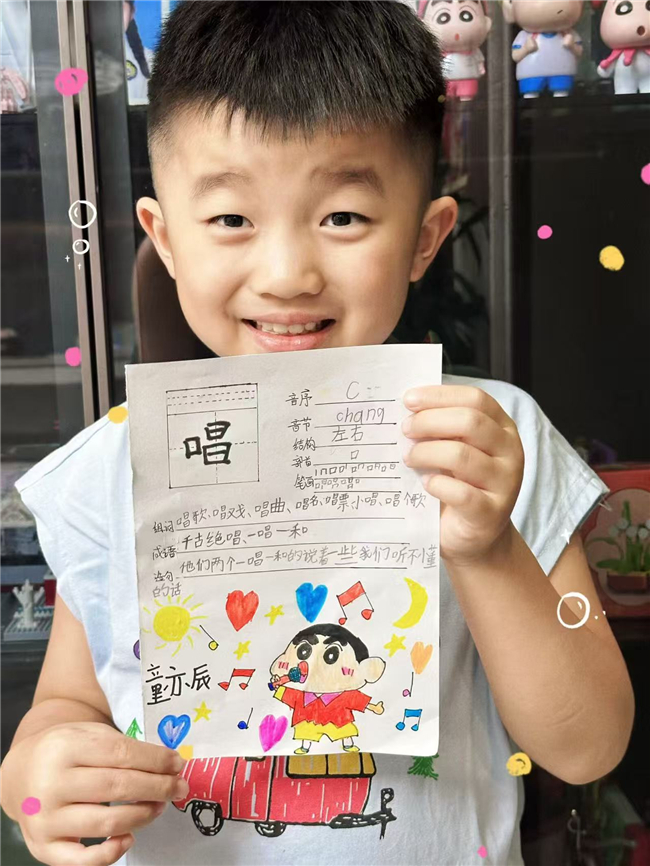 唱
音序 C
音节 chang
结构 左右
部首 口
笔画
组词 唱歌、唱戏、唱曲、唱名、唱票、小唱、唱个歌
成语: 千古绝唱、一唱一和
造句: 他们两个一唱一和的说着一些我们听不懂
的话
童亦辰